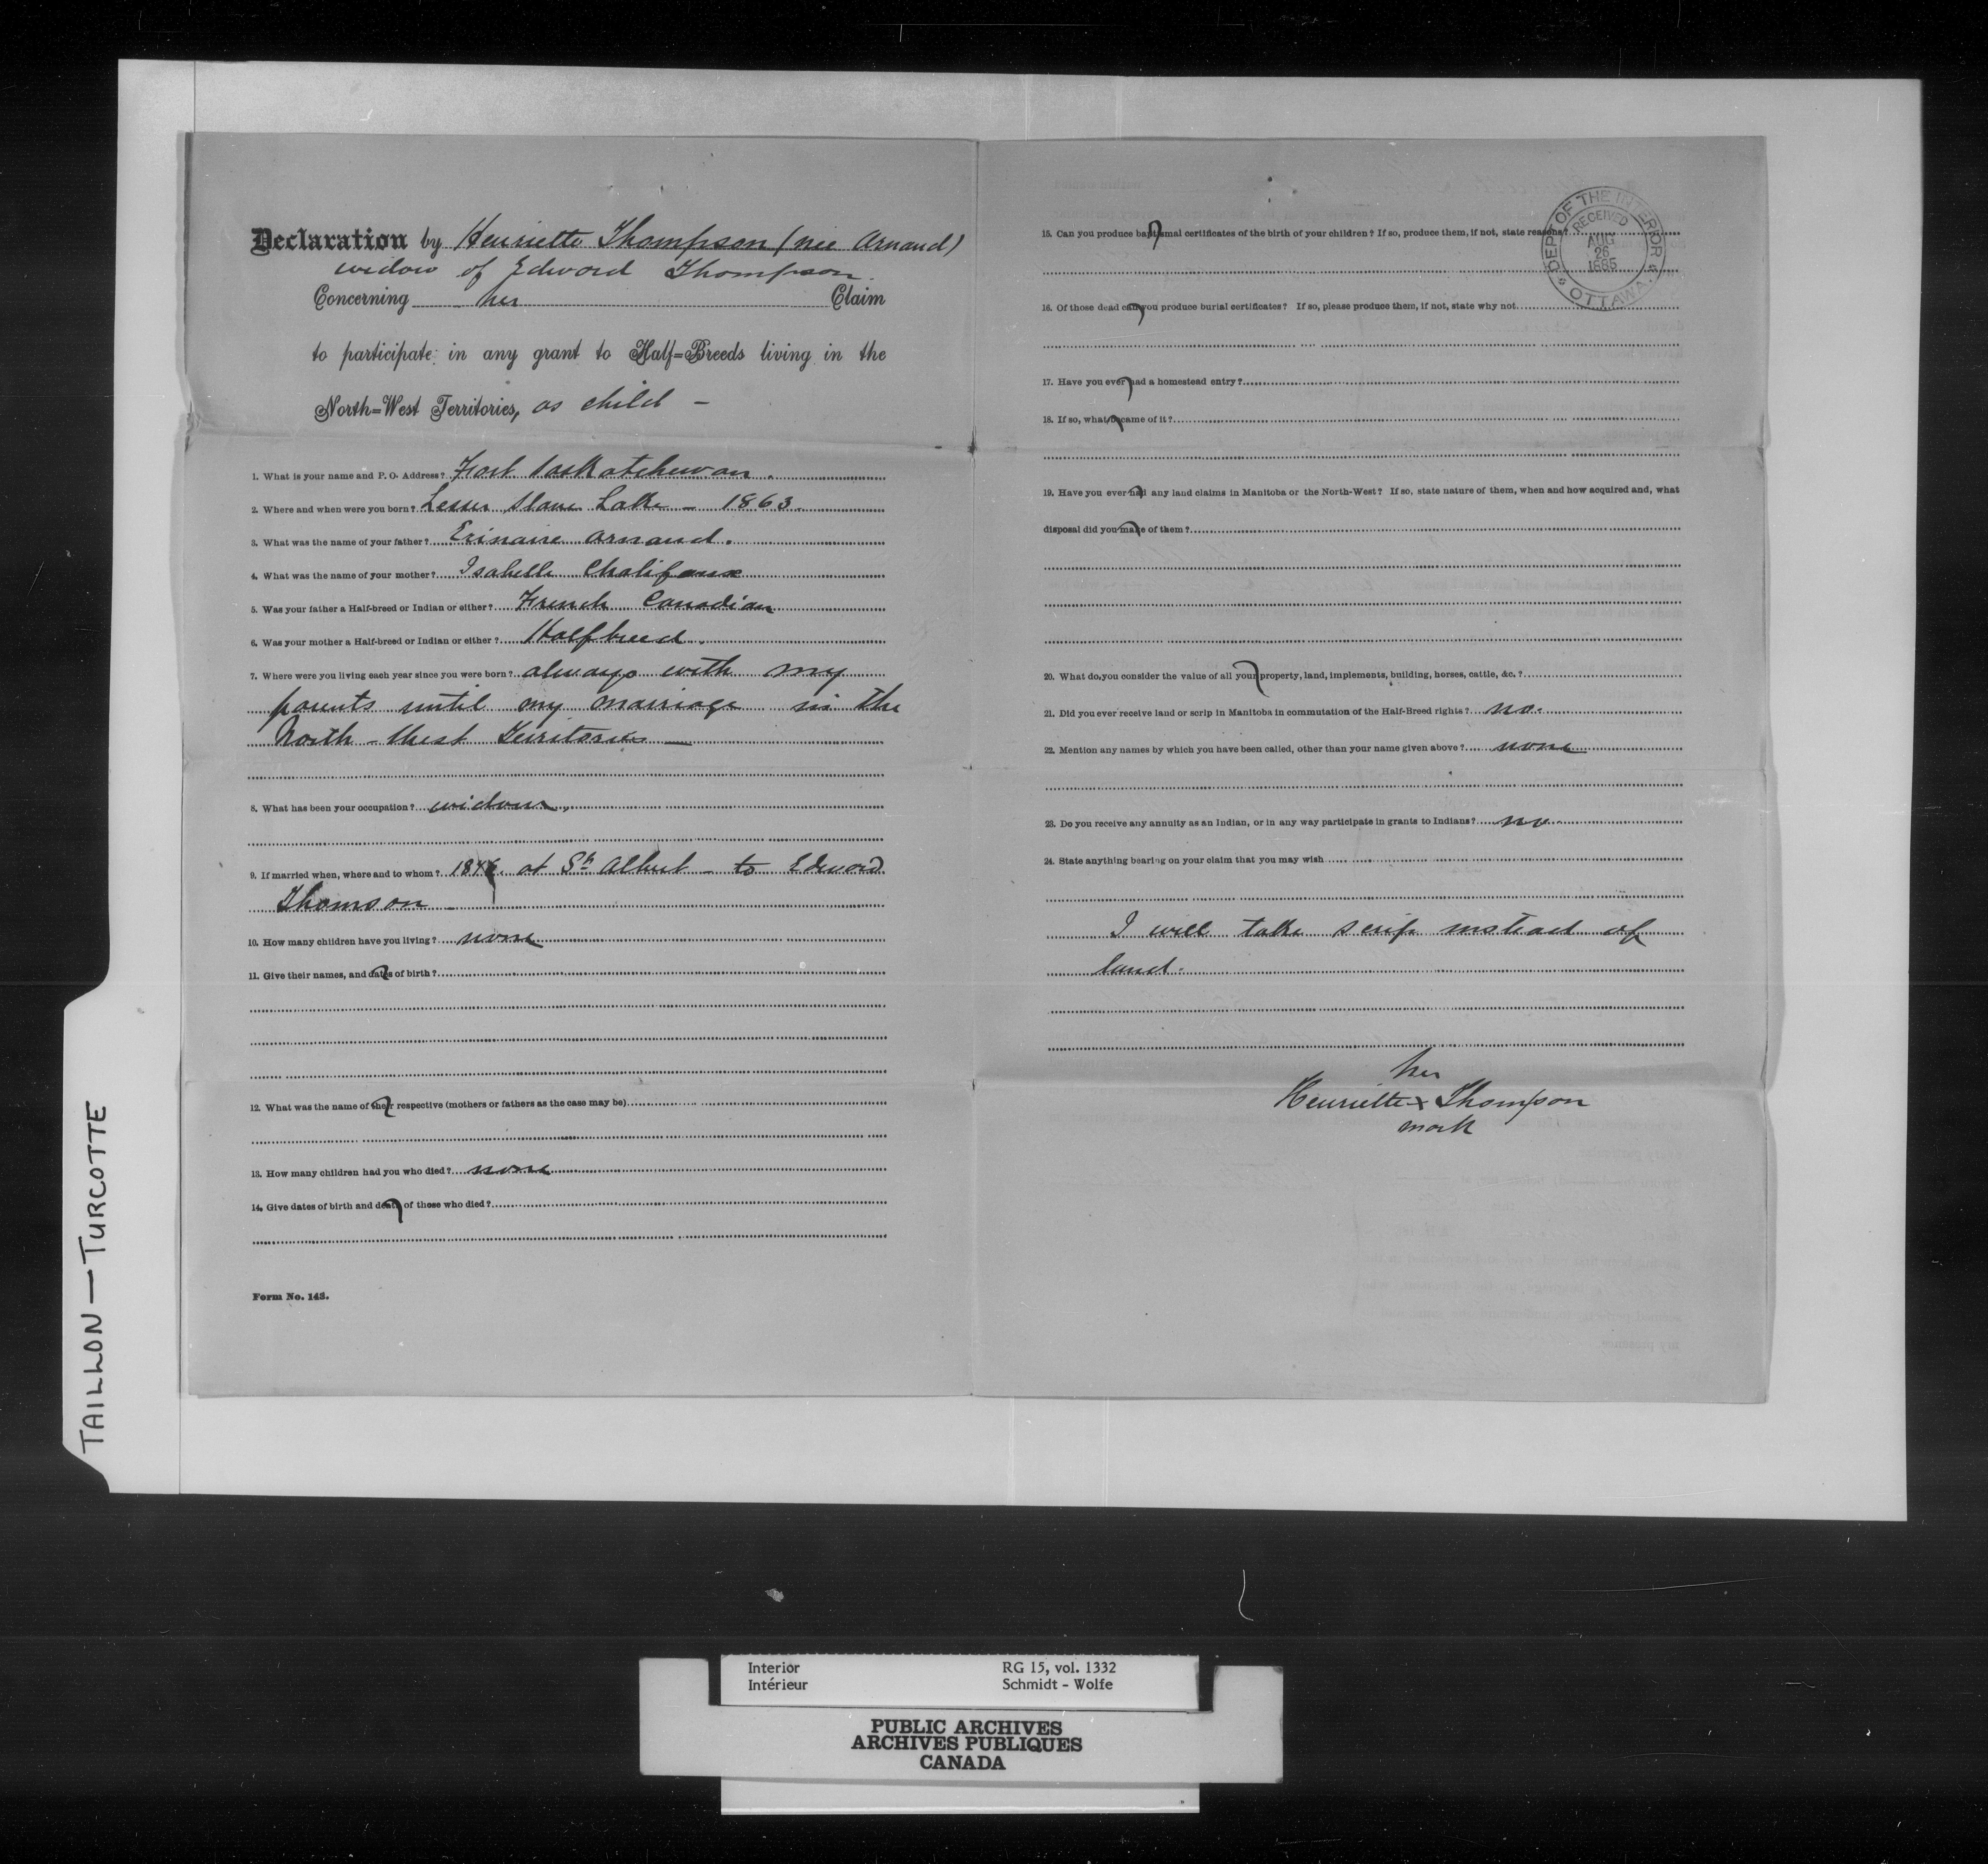 Declaration by Henriette Thompson (nee Arnaud)
widow of Edward Thompson.
Concerning her Claim
to participate in any grant to Half=Breeds living in the
North=West Territories, as child –
1. What is your name and P. O. Address? Fort Saskatchewan.
2. Where and when were you born? Lesser Slave Lake – 1863.
3. What was the name of your father? Arnaud.
4. What was the name of your mother? Isabelle Chalifoux
5. Was your father a Half-breed or Indian or either? French Canadian
6. Was your mother a Half-breed or Indian or either? Halfbreed.
7. Where were you living each year since you were born? always with my
parents until my marriage in the
North-West Territories —
8. What has been your occupation? widow.
9. If married when, where and to whom? at St. Albert – to Edward
Thomson –
10. How many children have you living? none
11. Give their names, and dates of birth?
12. What was the name of their respective (mothers or fathers as the case may be)
13. How many children had you who died? none
14. Give dates of birth and death of those who died?
Form No. 143.
15. Can you produce baptismal certificates of the birth of your children? If so, produce them, if not, state reasons?
16. Of those dead can you produce burial certificates? If so, please produce them, if not, state why not
17. Have you ever had a homestead entry?
18. If so, what became of it?
19. Have you ever had any land claims in Manitoba or the North-West? If so, state nature of them, when and how acquired and, what
disposal did you make of them?
20. What do you consider the value of all your property, land, implements, building, horses, cattle, &c.?
21. Did you ever receive land or scrip in Manitoba in commutation of the Half-Breed rights? no.
22. Mention any names by which you have been called, other than your name given above? none
23. Do you receive any annuity as an Indian, or in any way participate in grants to Indians? no
24. State anything bearing on your claim that you may wish
I will take scrip instead of
land.
her
Henriette x Thompson
mark
DEPT OF THE INTERIOR
RECEIVED
AUG
26
1885
OTTAWA.
TAILLON — TURCOTTE
Interior RG 15, vol. 1332
Intérieur Schmidt - Wolfe
PUBLIC ARCHIVES
ARCHIVES PUBLIQUES
CANADA